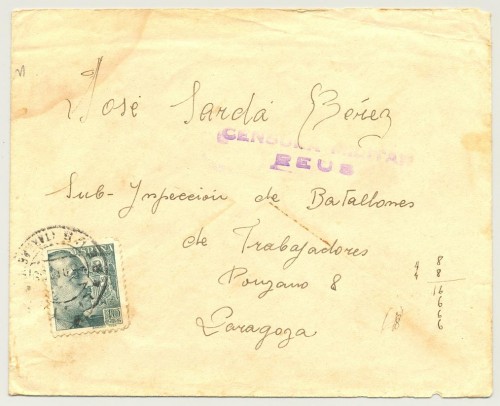 José Sardá Pérez
CENSURA MILITAR
REUS
Sub-Inpeccion de Batallones
de Trabajadores
Ponzano 8
Zaragoza
ESPAÑA
8
8
16
6
6
6